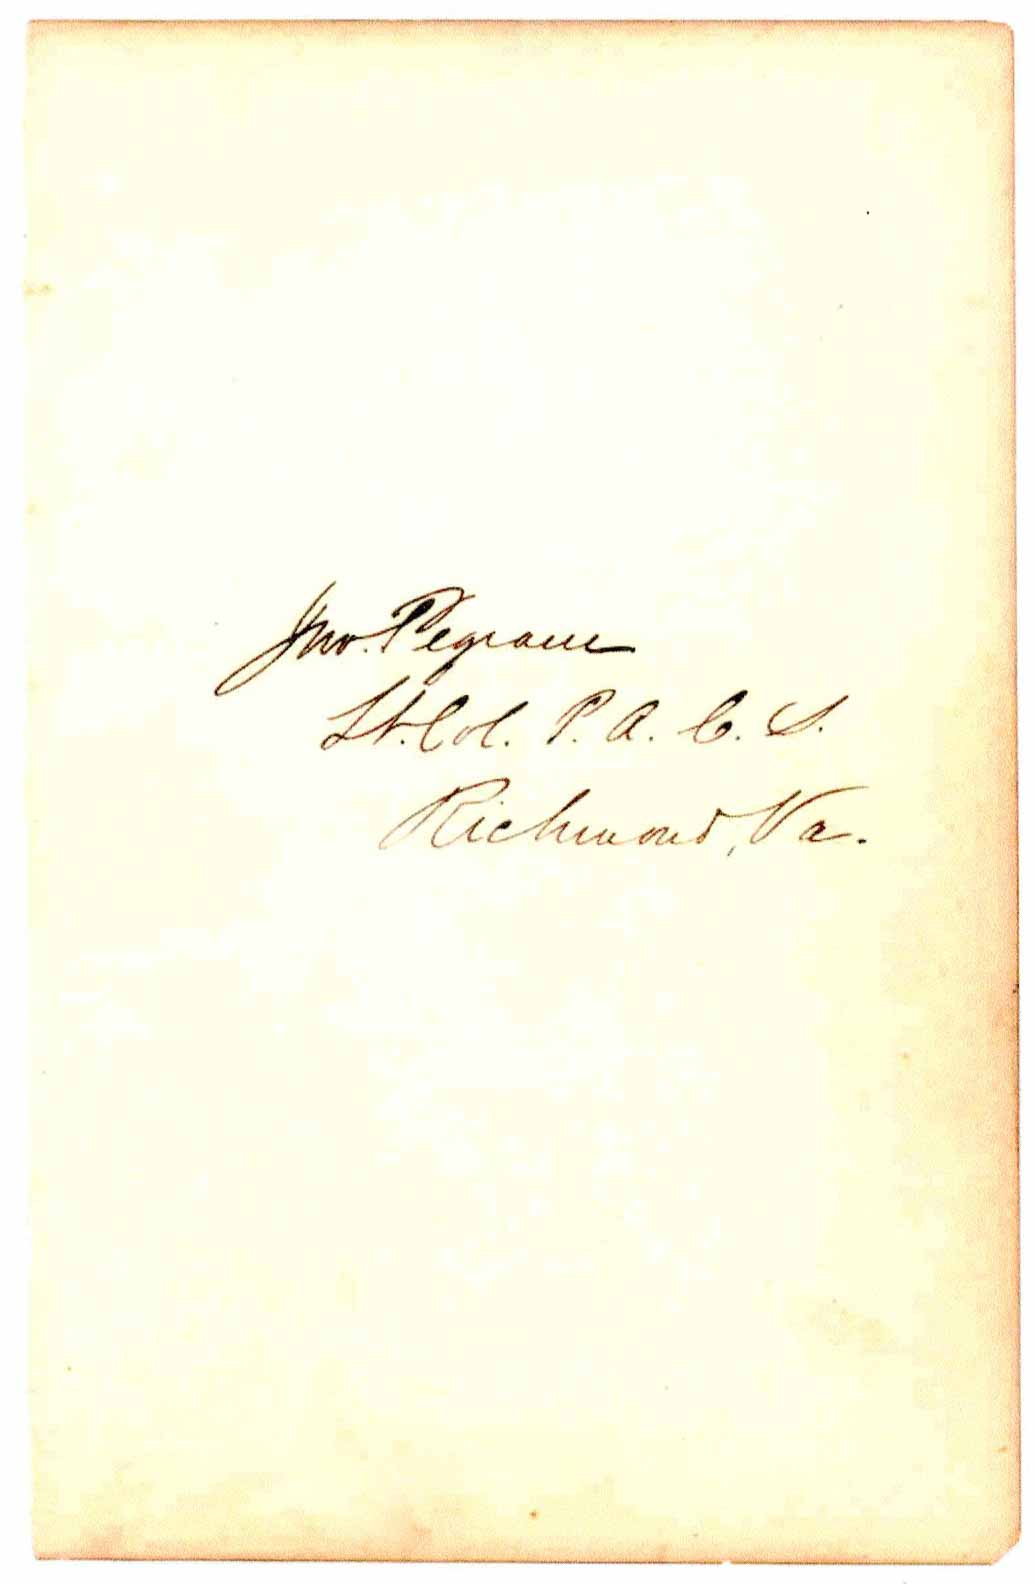 Jno. Pegram
Lt. Col. P. A. C. S.
Richmond, Va.